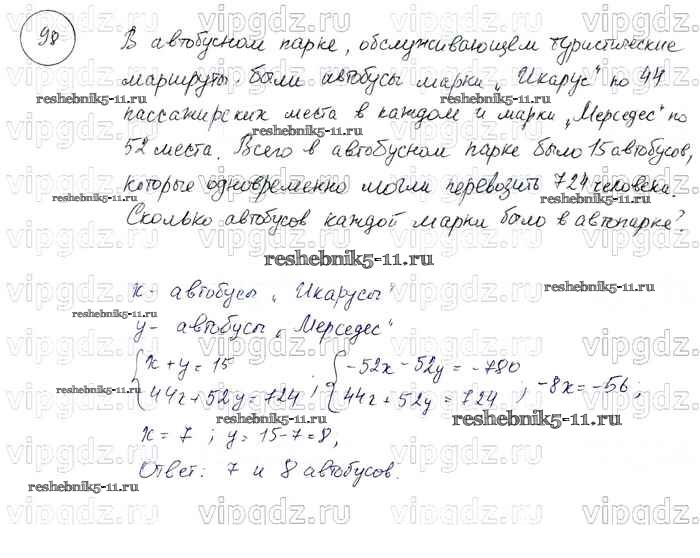 98
В автобусном парке, обслуживающем туристические
маршруты. были автобусы марки „Икарус" по 44
пассажирских места в каждом и марки „Мерседес" по
52 места. Всего в автобусном парке было 15 автобусов,
которые одновременно могли перевозить 724 человека.
Сколько автобусов каждой марки было в автопарке?
x - автобусы „Икарусы"
y - автобусы „Мерседес"
{x+y=15 ; {-52x-52y=-780
{44x+52y=724 {44x+52y=724 ; -8x=-56;
x=7 ; y=15-7=8,
Ответ: 7 и 8 автобусов.
reshebnik5-11.ru
vipgdz.ru